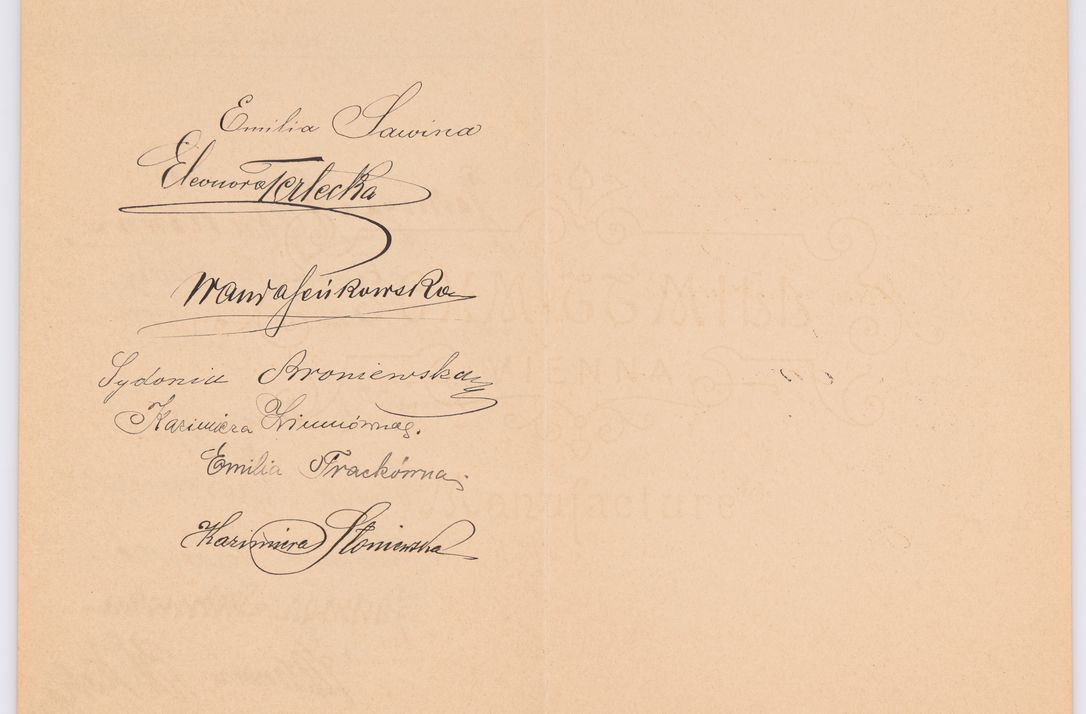 Emilia Sawina
Eleonora Terlecka
Wanda Jeńkowska
Sydonia Aroniewska
Kazimiera
Emilia Frackówna
Kazimiera Słoniewska